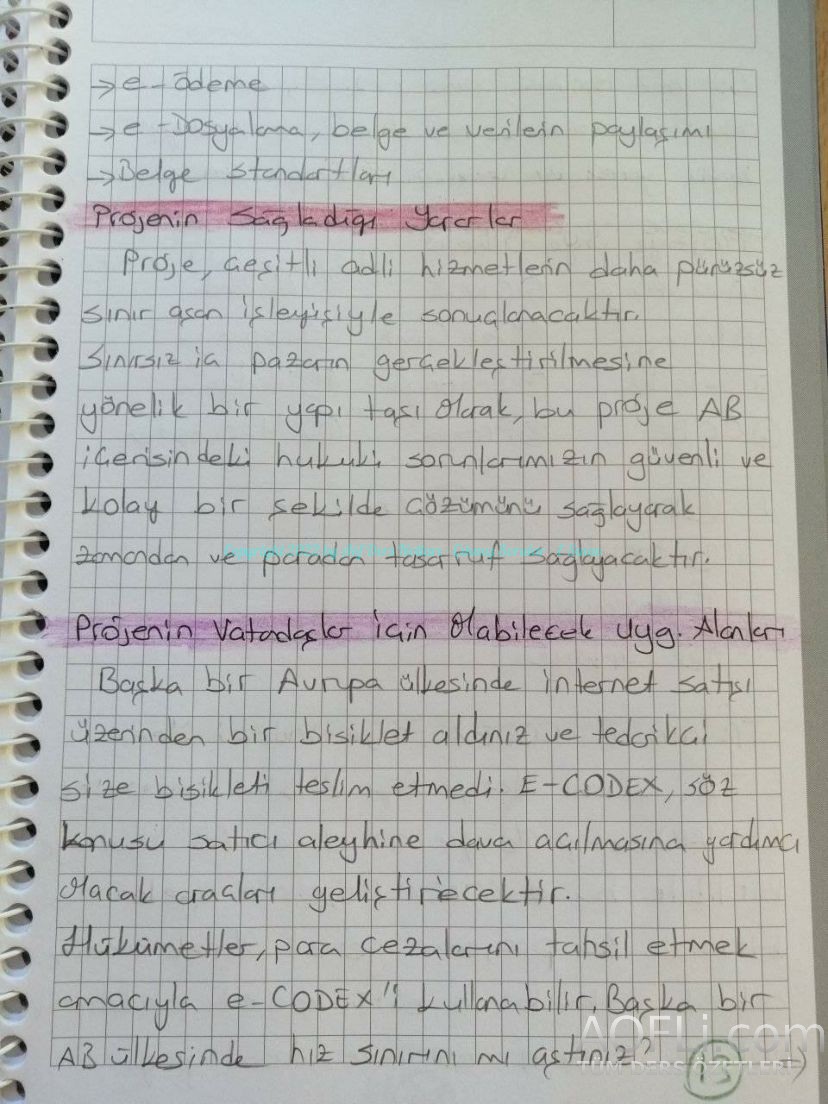 → e-ödeme
→ e-Dosyalama, belge ve verilerin paylaşımı
→ Belge standartları
Projenin Sağladığı Yararlar
Proje, çeşitli adli hizmetlerin daha pürüzsüz
sınır aşan işleyişiyle sonuçlanacaktır.
Sınırsız iç pazarın gerçekleştirilmesine
yönelik bir yapı taşı olarak, bu proje AB
içerisindeki hukuki sorunlarımızın güvenli ve
kolay bir şekilde çözümünü sağlayarak
zamandan ve paradan tasarruf sağlayacaktır.
Projenin Vatadaşlar için Olabilecek Uyg. Alanları
Başka bir Avrupa ülkesinde internet satışı
üzerinden bir bisiklet aldınız ve tedarikçi
size bisikleti teslim etmedi. E-CODEX, söz
konusu satıcı aleyhine dava açılmasına yardımcı
olacak araçları geliştirecektir.
Hükümetler, para cezalarını tahsil etmek
amacıyla e-CODEX'i kullanabilir. Başka bir
AB ülkesinde hız sınırını mı aştınız? →
AOFLi.com
TÜM DERS ÖZETLERİ
13